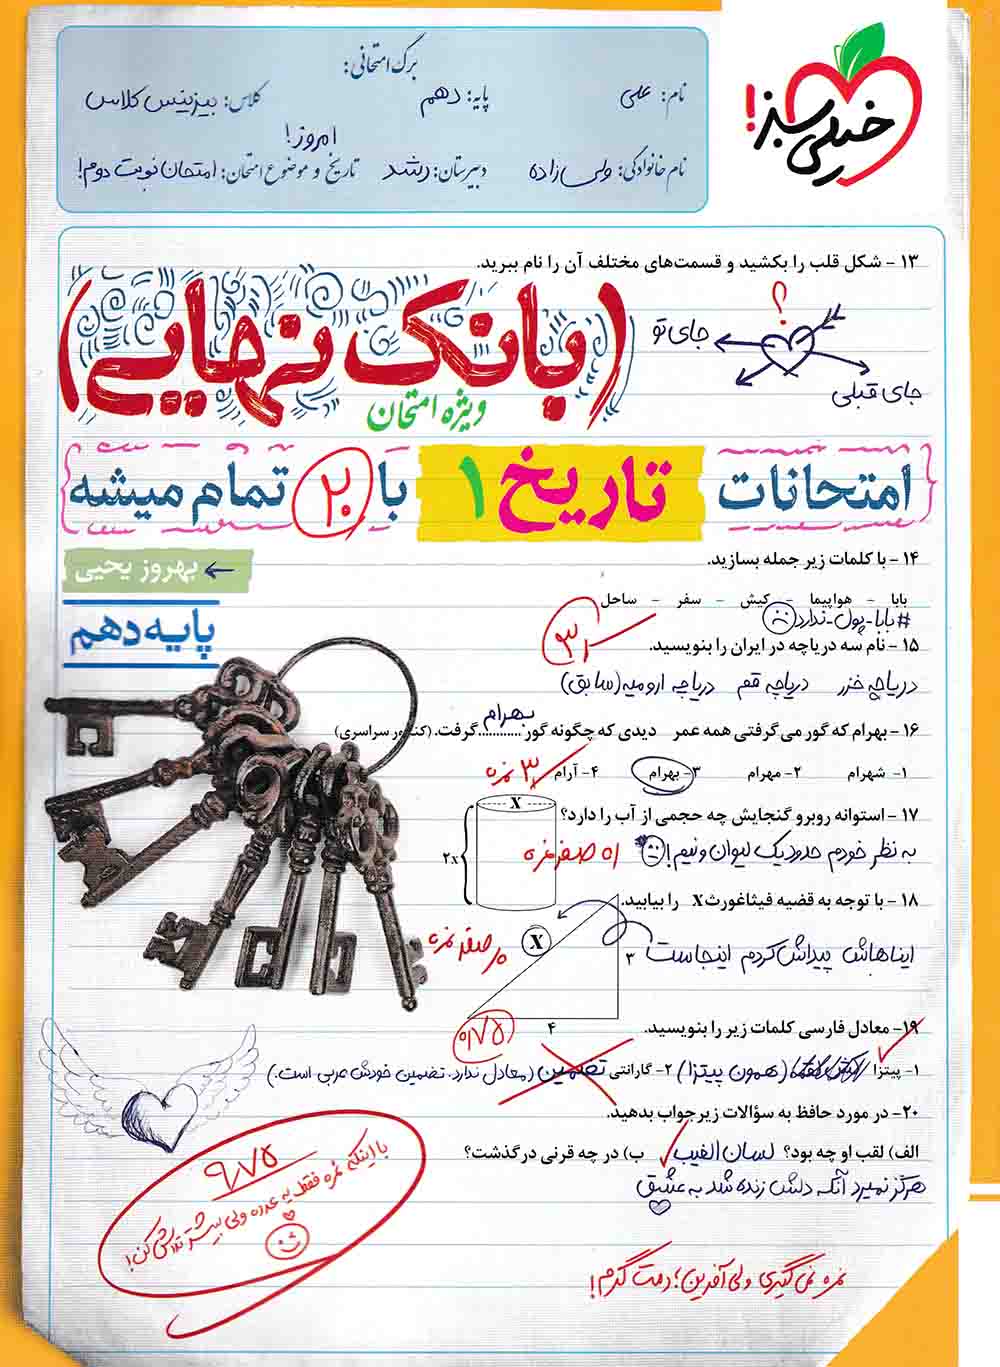 خیلی سبز!
برگ امتحانی:
نام: علی پایه: دهم کلاس: بیزینس کلاس
امروز!
نام خانوادگی: ولی زاده دبیرستان: رشد تاریخ و موضوع امتحان: امتحان نوبت دوم!
۱۳ - شکل قلب را بکشید و قسمت‌های مختلف آن را نام ببرید.
؟
جای تو
جای قبلی
(بانک نهایی)
ویژه امتحان
امتحانات تاریخ ۱ با ۲۰ تمام میشه
بهروز یحیی
پایه دهم
۱۴ - با کلمات زیر جمله بسازید.
بابا - هواپیما - کیش - سفر - ساحل
#بابا_پول_ندارد
۱۵ - نام سه دریاچه در ایران را بنویسید.
دریاچه خزر دریاچه قم دریاچه ارومیه (سابق)
۱۶ - بهرام که گور می گرفتی همه عمر دیدی که چگونه گور ........... گرفت. (کنکور سراسری)
بهرام
۱- شهرام ۲- مهرام ۳- بهرام ۴- آرام
۳ نمره
۱۷ - استوانه روبرو گنجایش چه حجمی از آب را دارد؟
X
۲x
به نظر خودم حدود یک لیوان و نیم!
صفر نمره
۱۸ - با توجه به قضیه فیثاغورث X را بیابید.
X
۳
ایناهاش پیداش کردم اینجاست
صفر نمره
۴
۱۹- معادل فارسی کلمات زیر را بنویسید.
۰/۷۵
۱- پیتزا (همون پیتزا) ۲- گارانتی تضمین (معادل ندارد. تضمین خودش عربی است.)
۲۰- در مورد حافظ به سؤالات زیر جواب بدهید.
الف) لقب او چه بود؟ لسان الغیب ب) در چه قرنی در گذشت؟
هرگز نمیرد آنکه دلش زنده شد به عشق
۹/۷۵
با اینکه نمره فقط یه عدده ولی بیشتر تلاش کن!
نمره نمی‌گیری ولی آفرین! دمت گرم!